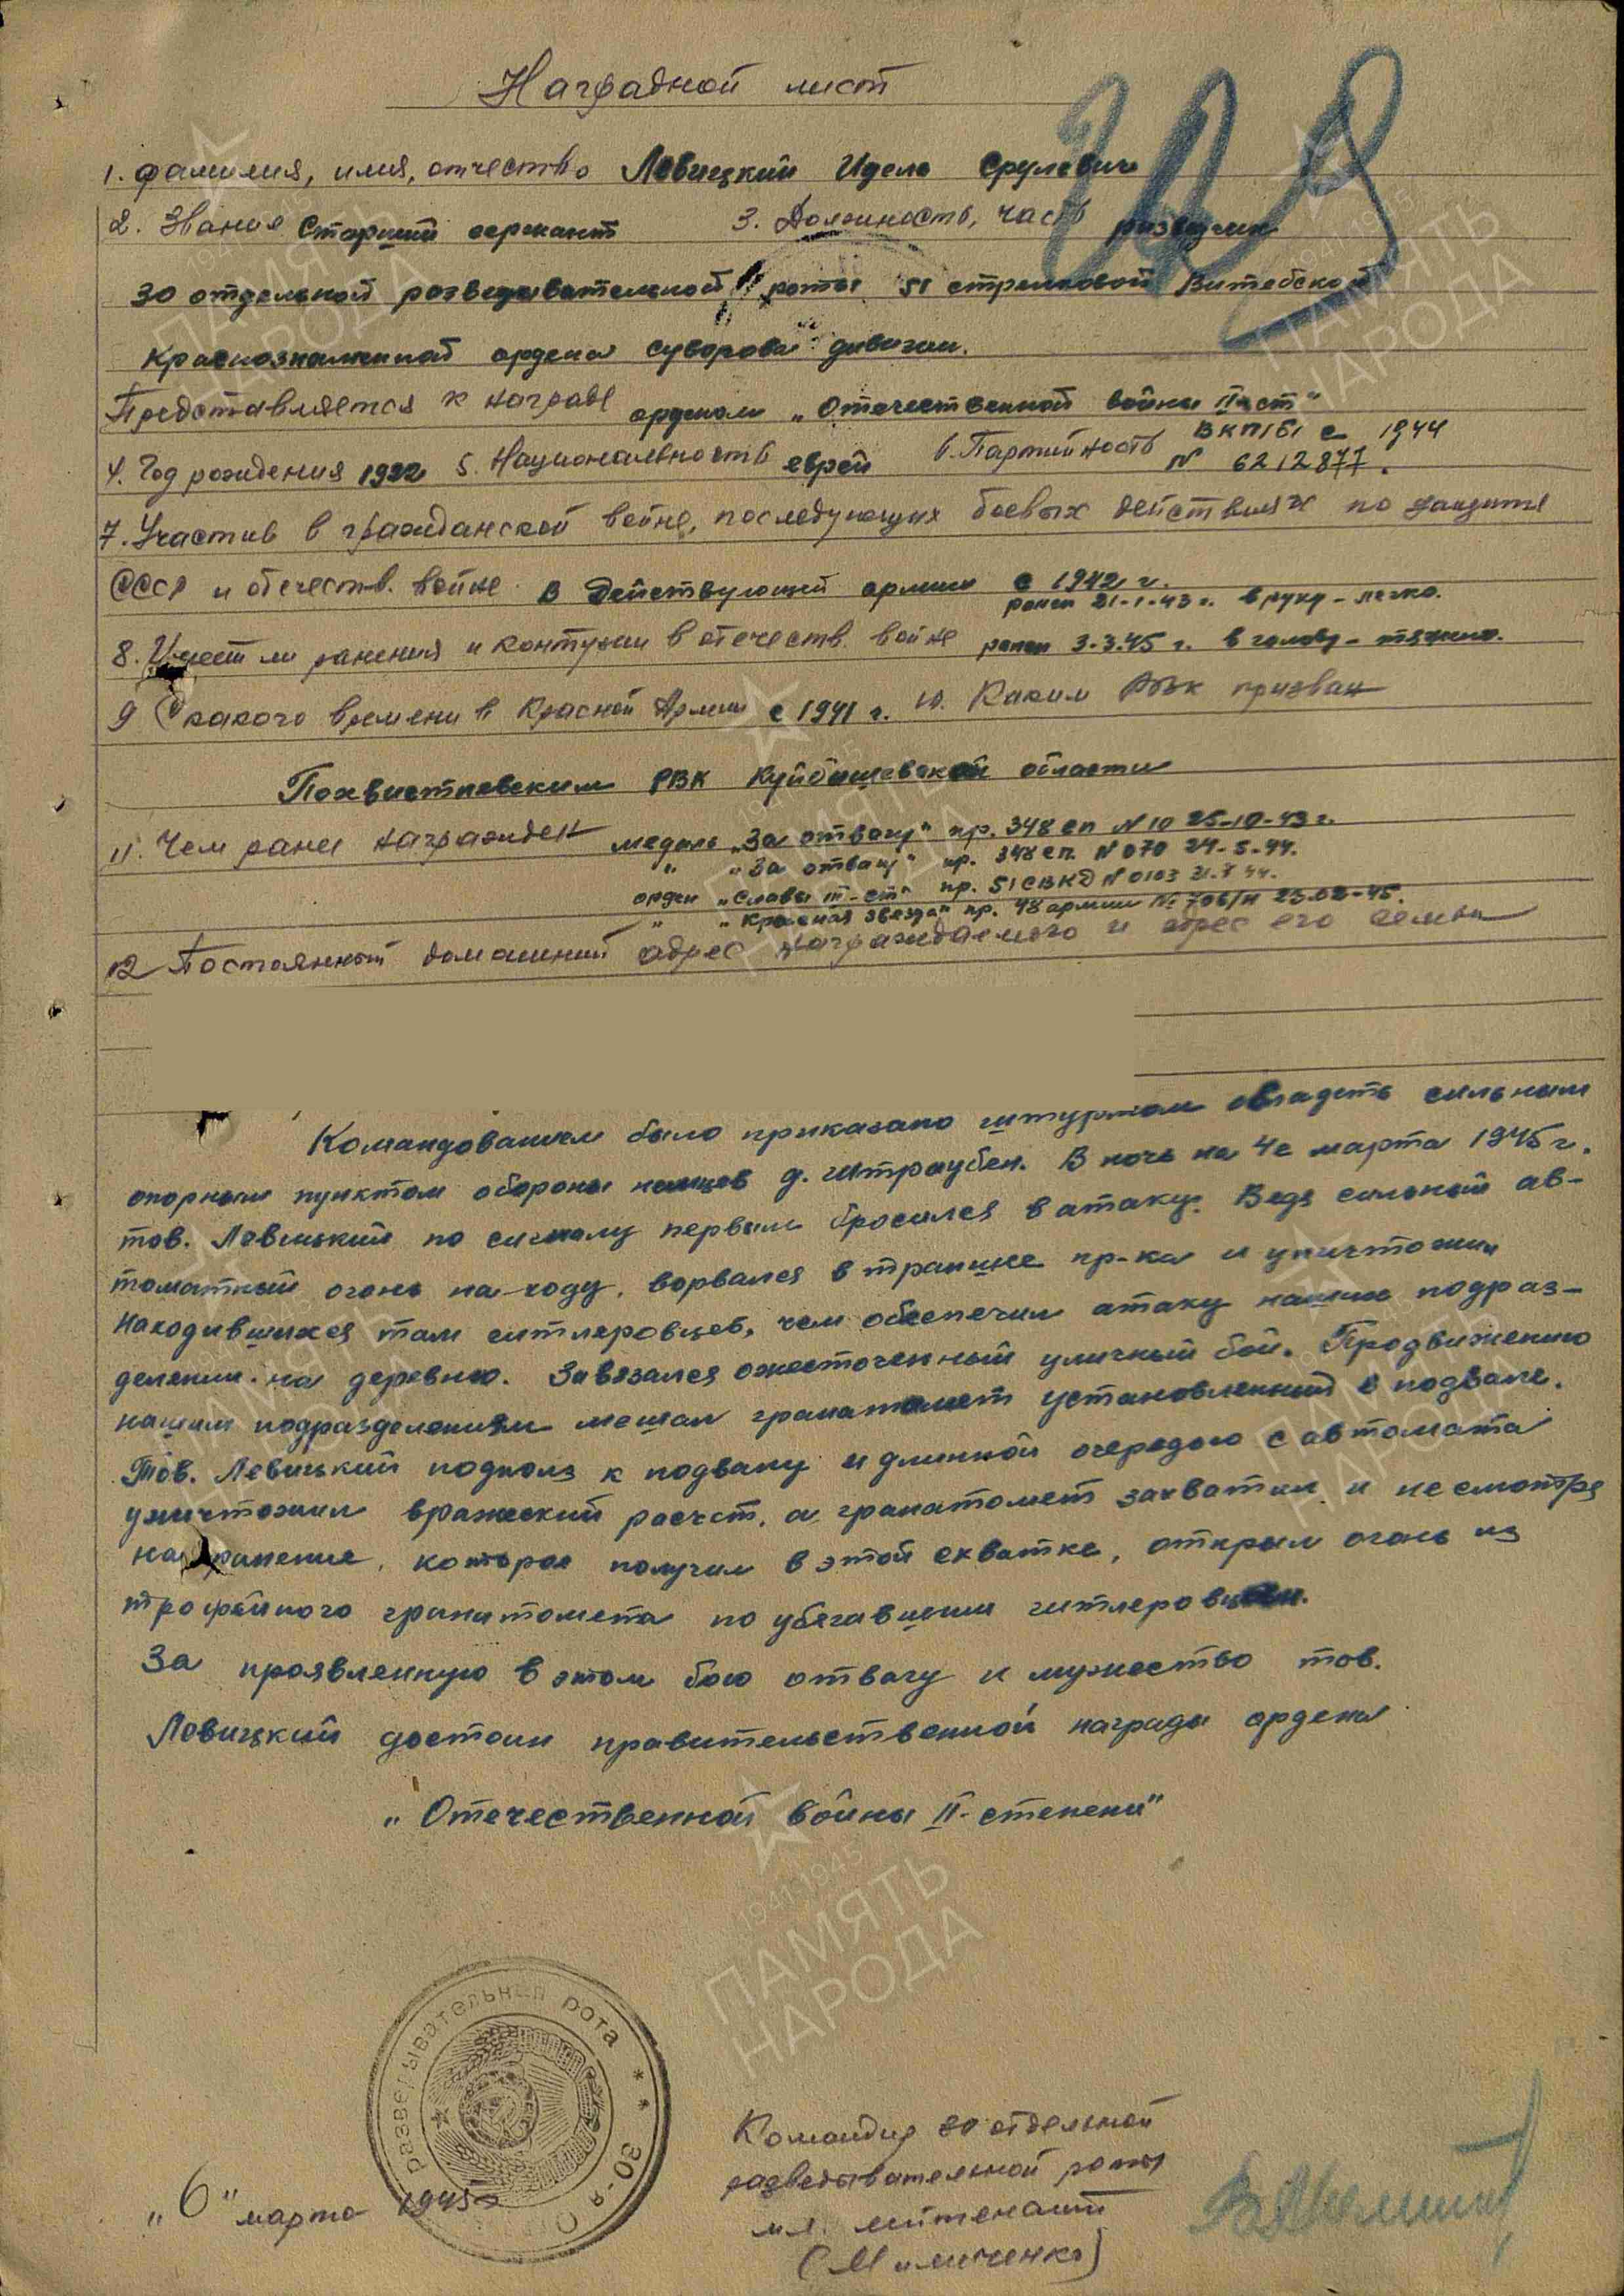 Наградной лист
1. Фамилия, имя, отчество Левицкий Идель Срулевич
2. Звание Старший сержант 3. Должность, часть разведчик
30 отдельной разведывательной роты 51 стрелковой Витебской
Краснознаменной ордена Суворова дивизии.
Представляется к награде орденом „Отечественной войны II ст"
4. Год рождения 1922 5. Национальность еврей 6. Партийность ВКП/б/ с 1944
N 6212877.
7. Участие в гражданской войне, последующих боевых действиях по защите
СССР и отечеств. войне в действующей армии с 1942 г.
ранен 21-1-43 г. в руку - легко.
8. Имеет ли ранения и контузии в отечеств. войне ранен 3.3.45 г. в голову - тяжело.
9 С какого времени в Красной Армии с 1941 г. 10. Каким РВК призван
Похвистневским РВК Куйбышевской области
11. Чем ранее награжден медаль „За отвагу" пр. 348 сп N 10 25-10-43 г.
" „За отвагу" пр. 348 сп. N 070 24-5-44.
орден „Славы III-ст" пр. 51 СВКД N 0103 21.7 44.
" „Красная звезда" пр. 48 армии № 706/н 23.02-45.
12 Постоянный домашний адрес награждаемого и адрес его семьи
Командованием было приказано штурмом овладеть сильным
опорным пунктом обороны немцев д. Штраубен. В ночь на 4е марта 1945 г.
тов. Левицкий по сигналу первым бросился в атаку. Ведя сильный ав-
томатный огонь на-ходу, ворвался в траншее пр-ка и уничтожил
находившихся там гитлеровцев, чем обеспечил атаку наших подраз-
делении на деревню. Завязался ожесточенный уличный бой. Продвижению
нашим подразделениям мешал гранатомет установленный в подвале.
Тов. Левицкий подполз к подвалу и длинной очередью с автомата
уничтожил вражеский расчет, а гранатомет захватил и не смотря
на ранение, которое получил в этой схватке, открыл огонь из
трофейного гранатомета по убегавшим гитлеровцам.
За проявленную в этом бою отвагу и мужество тов.
Левицкий достоин правительственной награды ордена
„Отечественной войны II-степени"
разведывательная рота * * 30-я
Командир 30 отдельной
разведывательной роты
мл. лейтенант
„6" марта 1945г
ПАМЯТЬ
НАРОДА
1941-1945